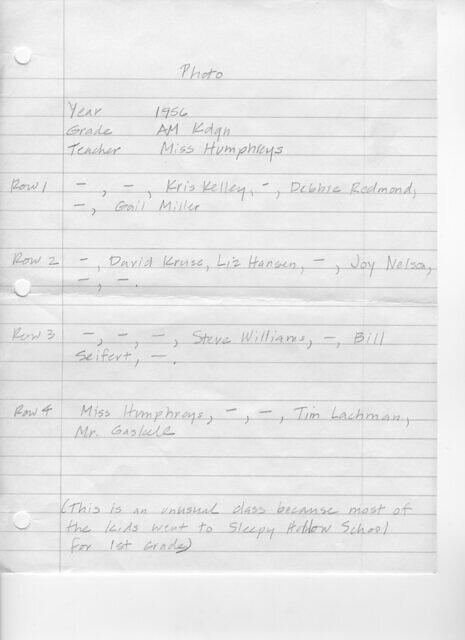 Photo
Year 1956
Grade AM Kdgn
Teacher Miss Humphreys
Row 1 -, -, Kris Kelley, -, Debbie Redmond,
-, Gail Miller
Row 2 -, David Kruse, Liz Hansen, -, Joy Nelson,
-, -.
Row 3 -, -, -, Steve Williams, -, Bill
Seifert, -.
Row 4 Miss Humphreys, -, -, Tim Lachman,
Mr. Gaskell
(This is an unusual class because most of
the kids went to Sleepy Hollow School
for 1st grade)